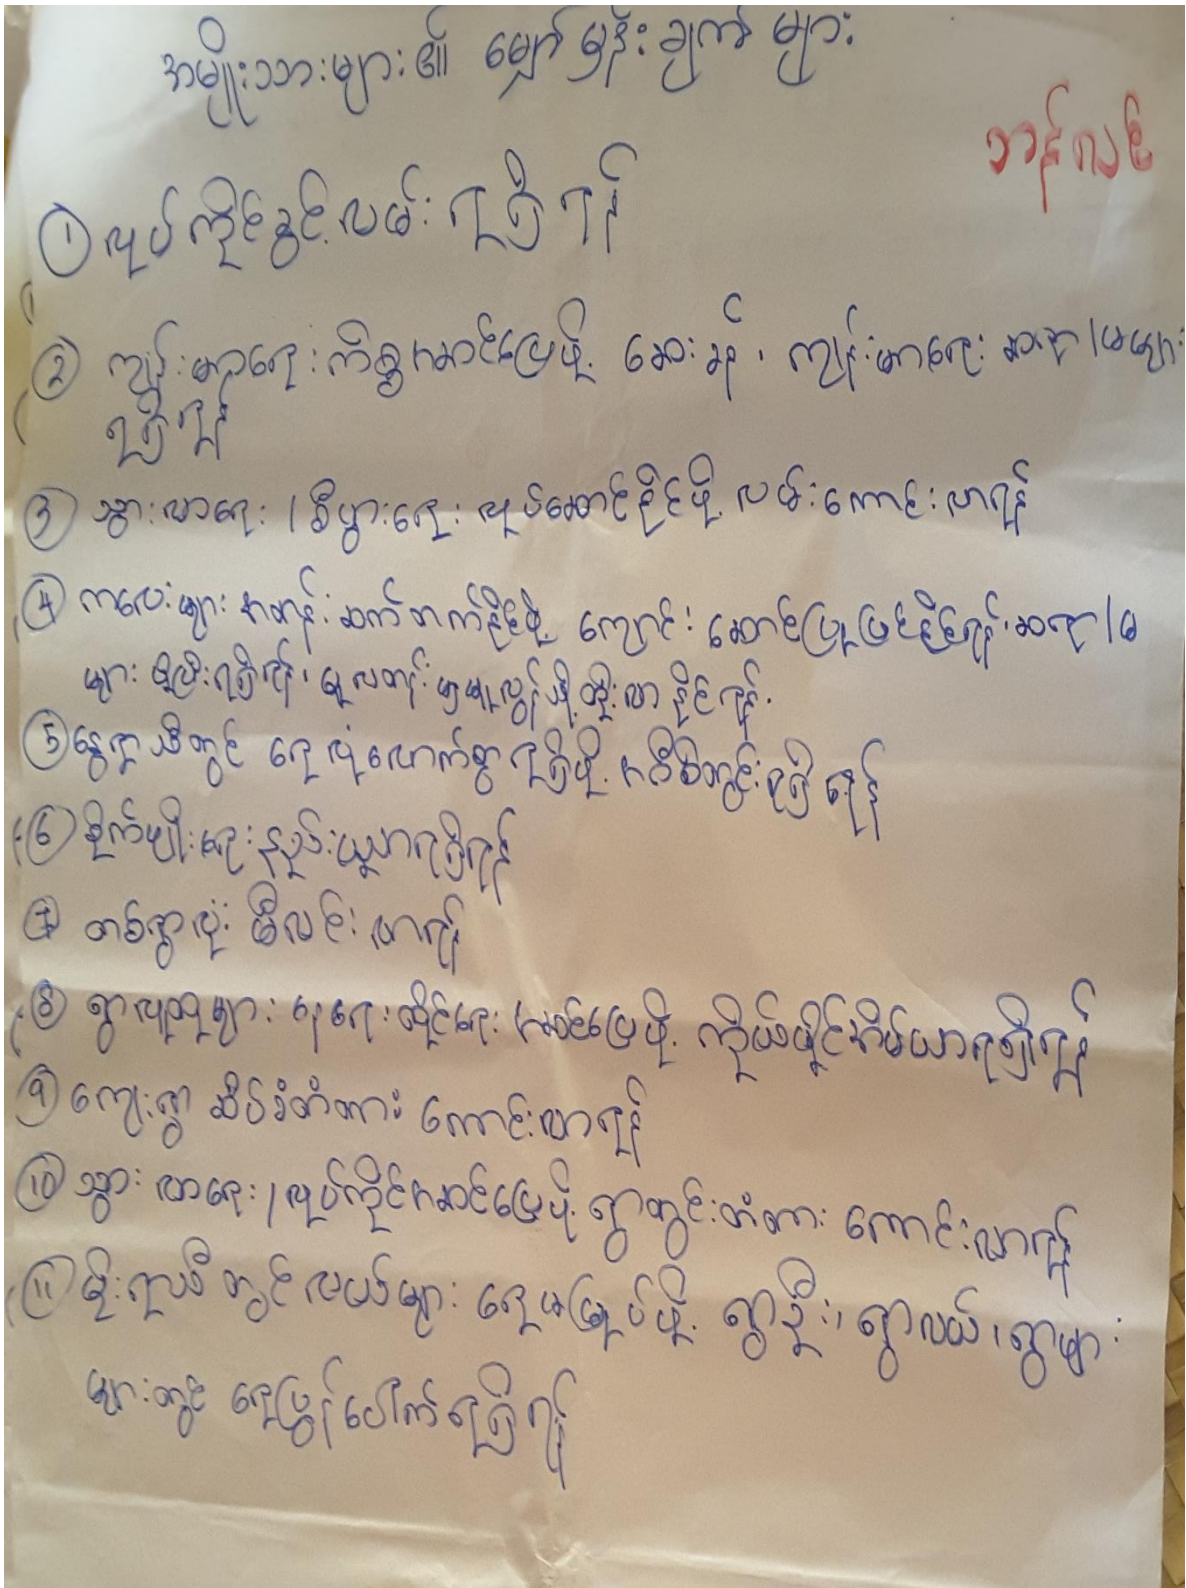 အမျိုးသားများ၏ မျှော်မှန်းချက် များ
ဘန်လင်
① လုပ်ကိုင်ခွင့် လမ်း ရရှိ ရန်
② ကျန်းမာရေး ကိစ္စ အဆင်ပြေဖို့ ဆေးခန်း၊ ကျန်းမာရေး ဆရာ/မများ
ရရှိရန်
③ သွားလာရေး / စီးပွားရေး လုပ်ဆောင်နိုင်ဖို့ လမ်းကောင်းလာရန်
④ ကလေးများ အတန်းဆက်တက်နိုင်ဖို့ ကျောင်း ဆောင်ပြုပြင်နိုင်ရန်၊ ဆရာ/မ
များ ဖို့ပိုးရရှိရန်၊ မူလတန်း မှ မူလွန်သို့ တိုးလာနိုင်ရန်.
⑤ နွေရာသီတွင် ရေလုံလောက်စွာ ရရှိဖို့ အဝီစိတွင်းရရှိရန်
⑥ စိုက်ပျိုးရေးနည်းပညာရရှိရန်
⑦ တစ်ရွာလုံး မီးလင်းလာရန်
⑧ ရွာလူထုများ နေရေးထိုင်ရေး အဆင်ပြေဖို့ ကိုယ်ပိုင်အိမ်ယာရရှိရန်
⑨ ကျေးရွာ ဆိပ်ခံတံတား ကောင်းလာရန်
⑩ သွားလာရေး / လုပ်ကိုင်အဆင်ပြေဖို့ ရွာတွင်းတံတား ကောင်းလာရန်
⑪ မိုးရာသီတွင်လယ်များ ရေမမြုပ်ဖို့ ရွာဦး၊ ရွာလယ်၊ ရွာဖျား
များတွင် ရေပြွန်ပေါက်ရရှိရန်